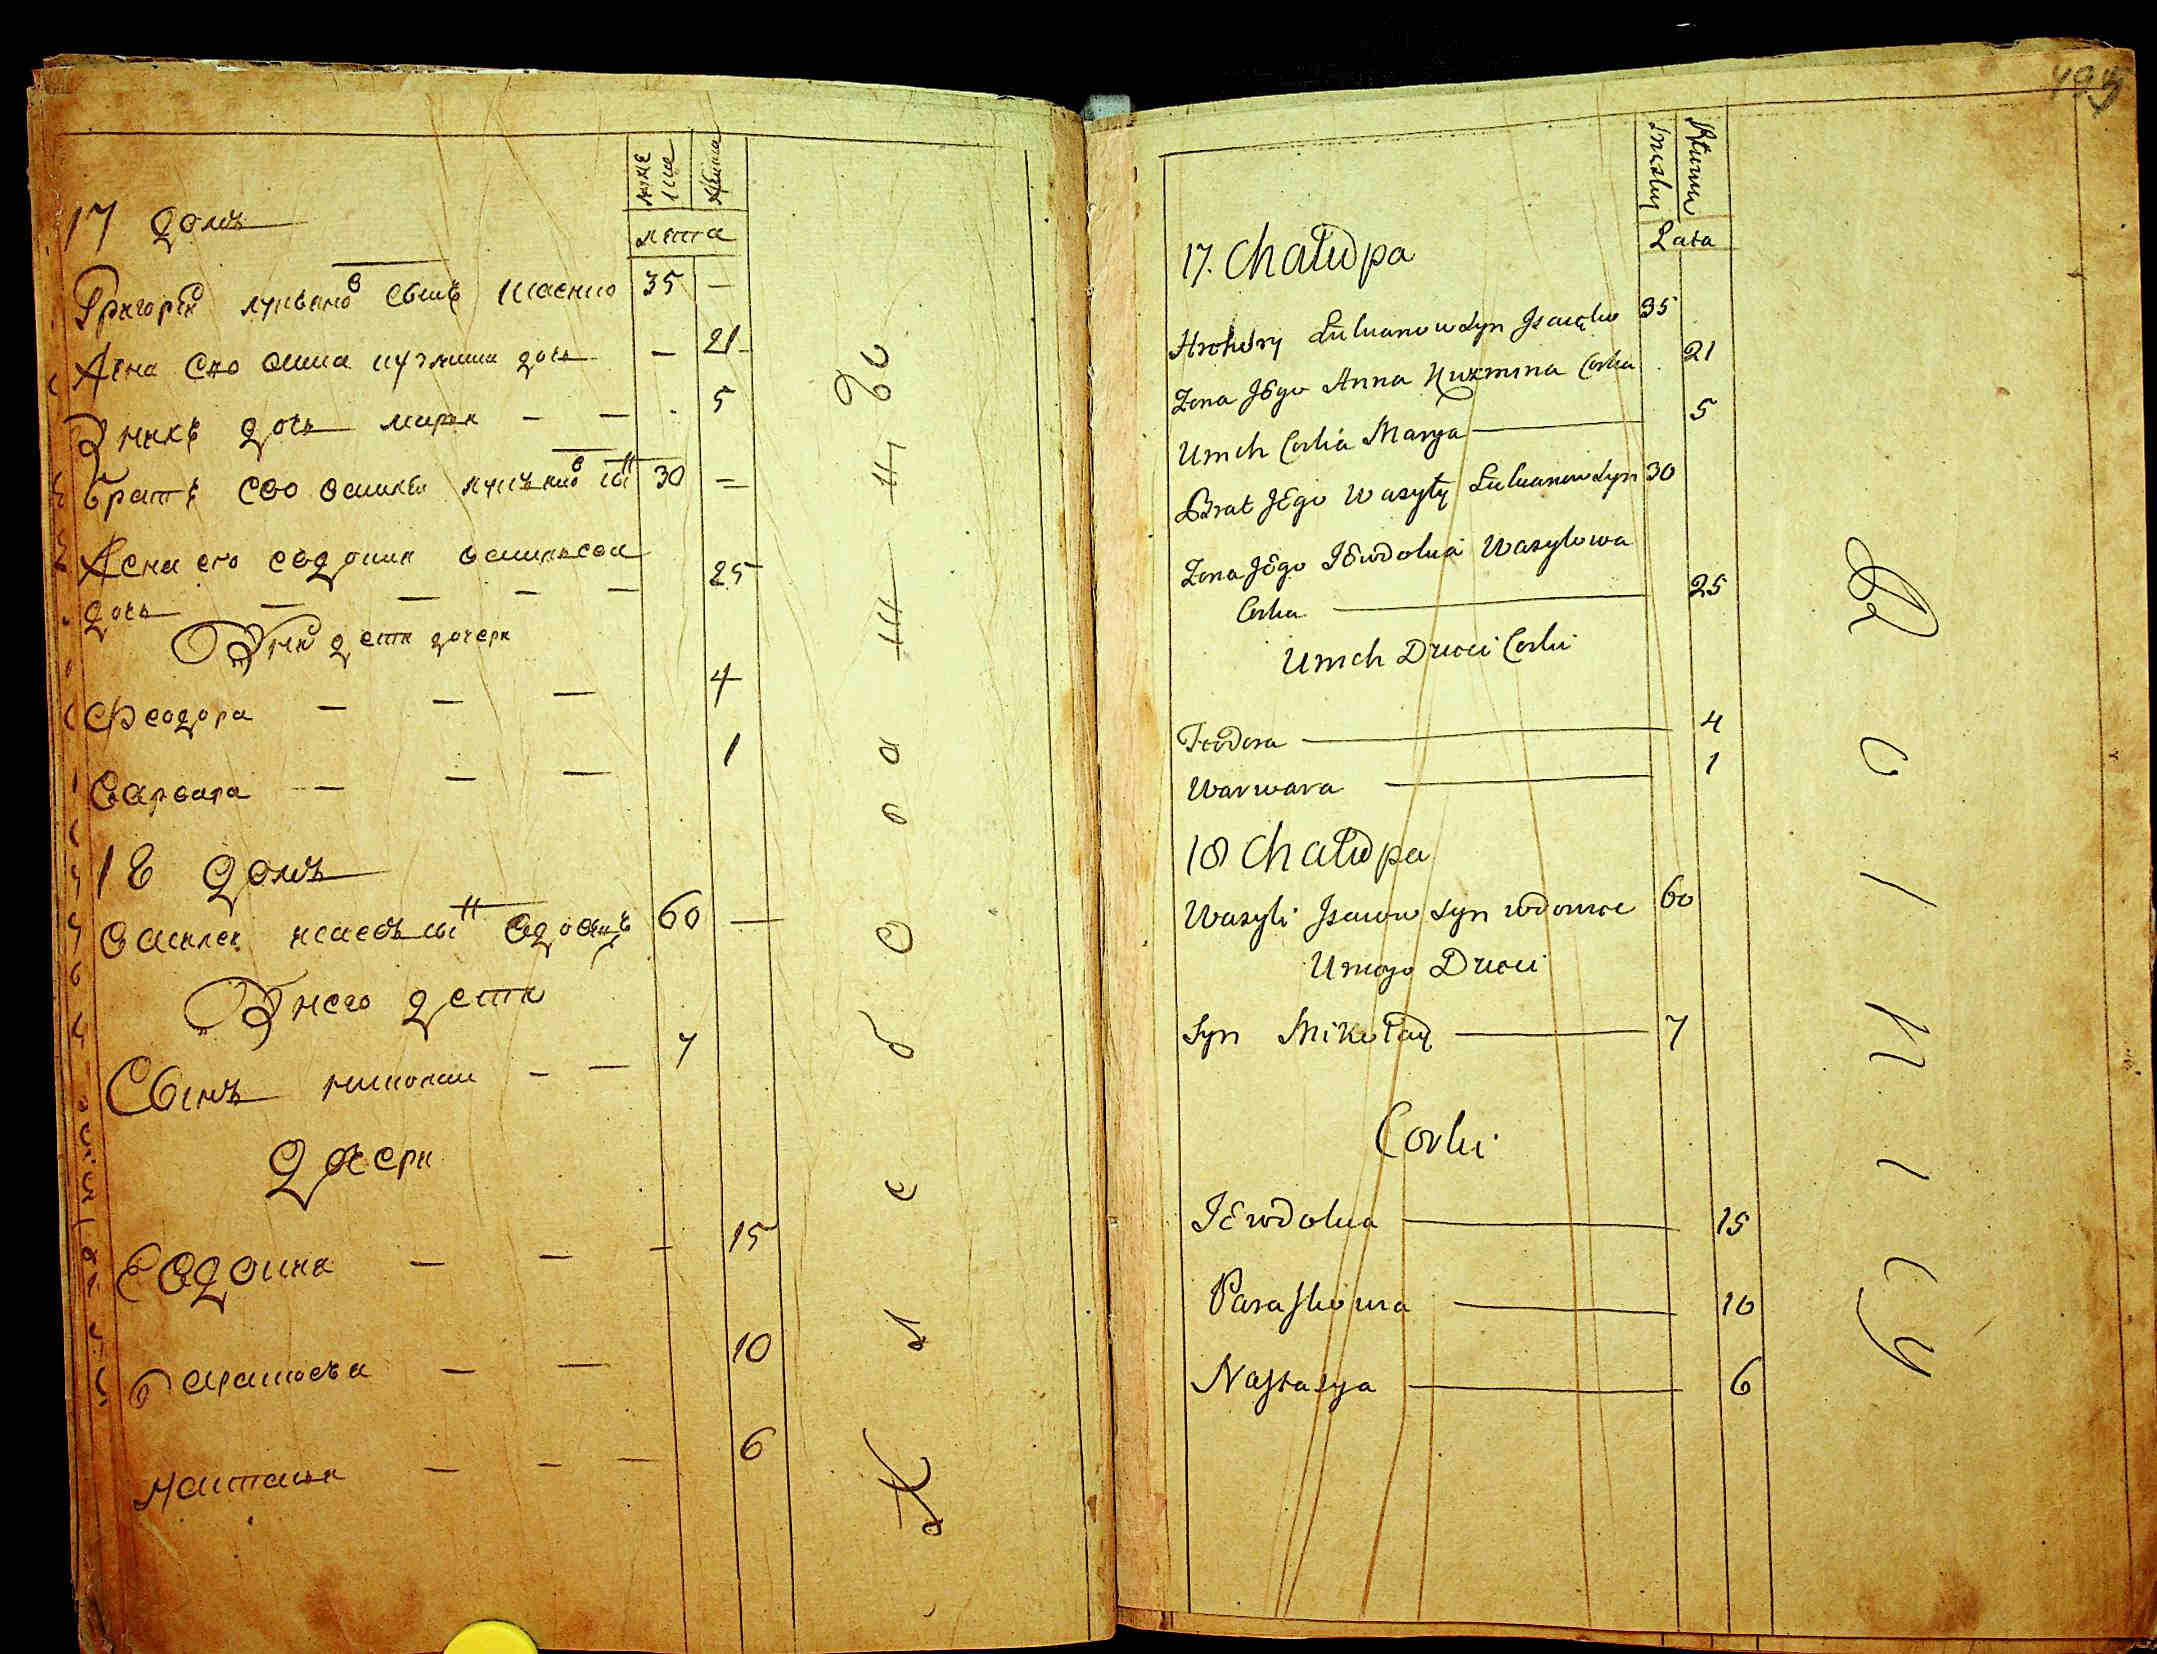 муже
ска
женска
лета
17 домъ
Григорей лукьяновъ сынъ исаенко 35 —
Жена ево анна кузмина дочь — 21
У нихъ дочь марея — — 5
братъ ево василеи лукьяновъ сынъ 30 —
Жена его евдокия василиева
дочь — — — — 25
У нихъ дети дочери
Феодора — — — 4
варвара — — — 1
18 домъ
василеи исаевъ сынъ вдовецъ 60 —
У него дети
Сынъ николаи — — 7
Дочери
Евдокия — — — 15
параскева — — 10
настасия — — — 6
495
Męzkey
Lata
17. Chałupa
Hrehory Łukianow Syn Isaięko 35
Zona Jego Anna Kuzmina Corka 21
Unich Corka Marya 5
Brat Jego Wasyły Łukianow Syn 30
Zona Jego Jewdokia Wasylowa
Corka 25
Unich Dzieci Corki
Teodora 4
Warwara 1
18 Chałupa
Wasyli Isaiow Syn wdowiec 60
Uniego Dzieci
Syn Mikołay 7
Corki
Jewdokia 15
Paraskowia 10
Nastasya 6
Rolnicy